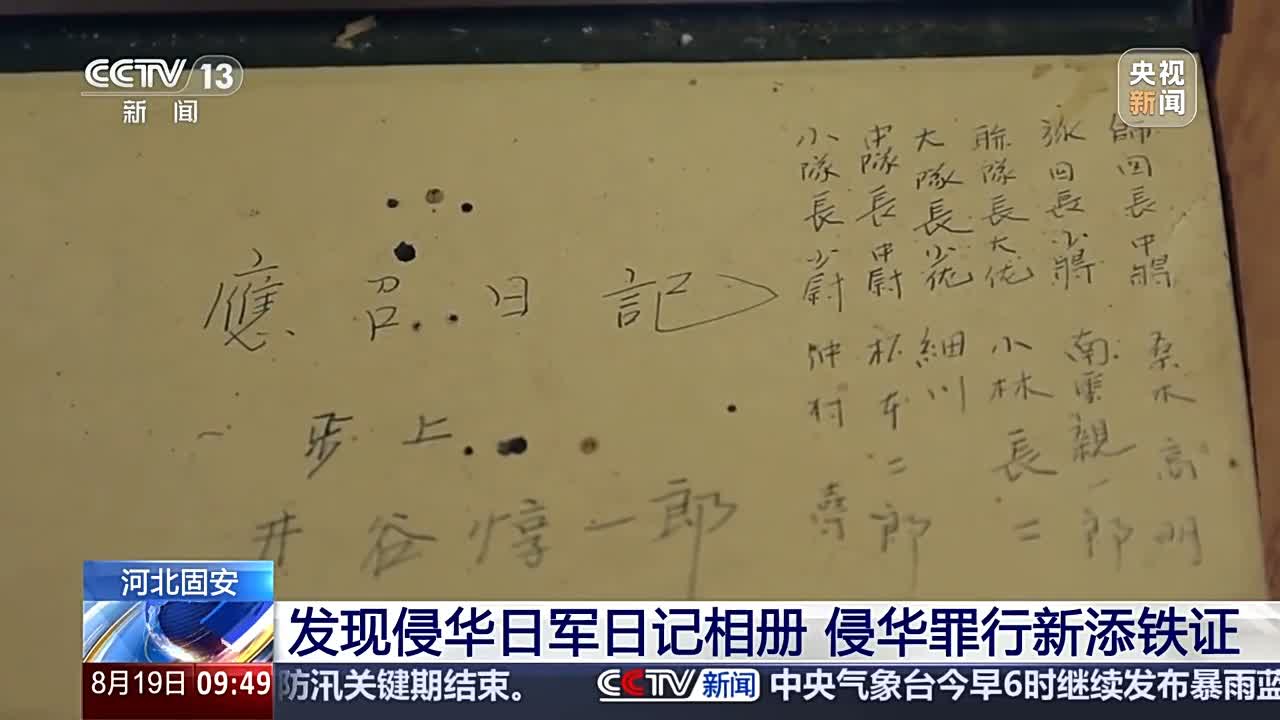 CCTV 13
新闻
央视
新闻
師団長 中將 桑木 高明
旅団長 少將 南雲親一郎
聯隊長 大佐 小林 長二
大隊長 少佐 細川
中隊長 中尉 杉本二郎
小隊長 少尉 仲村
應召日記
一歩上
井谷惇一郎
河北固安
发现侵华日军日记相册 侵华罪行新添铁证
8月19日 09:49
防汛关键期结束。 CCTV新闻 中央气象台今早6时继续发布暴雨蓝